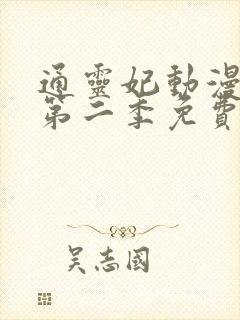 通靈妃動漫
第二季免費
吳志國